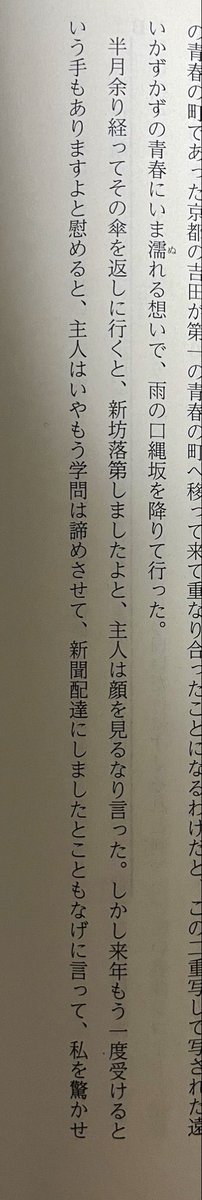 の青春の町であった京都の吉田が第一の青春の町へ移って来て重なり合ったことになるわけだと、この二重写しで写された遠
いかずかずの青春にいま濡れる想いで、雨の口縄坂を降りて行った。
半月余り経ってその傘を返しに行くと、新坊落第しましたよと、主人は顔を見るなり言った。しかし来年もう一度受けると
いう手もありますよと慰めると、主人はいやもう学問は諦めさせて、新聞配達にしましたとこともなげに言って、私を驚かせ